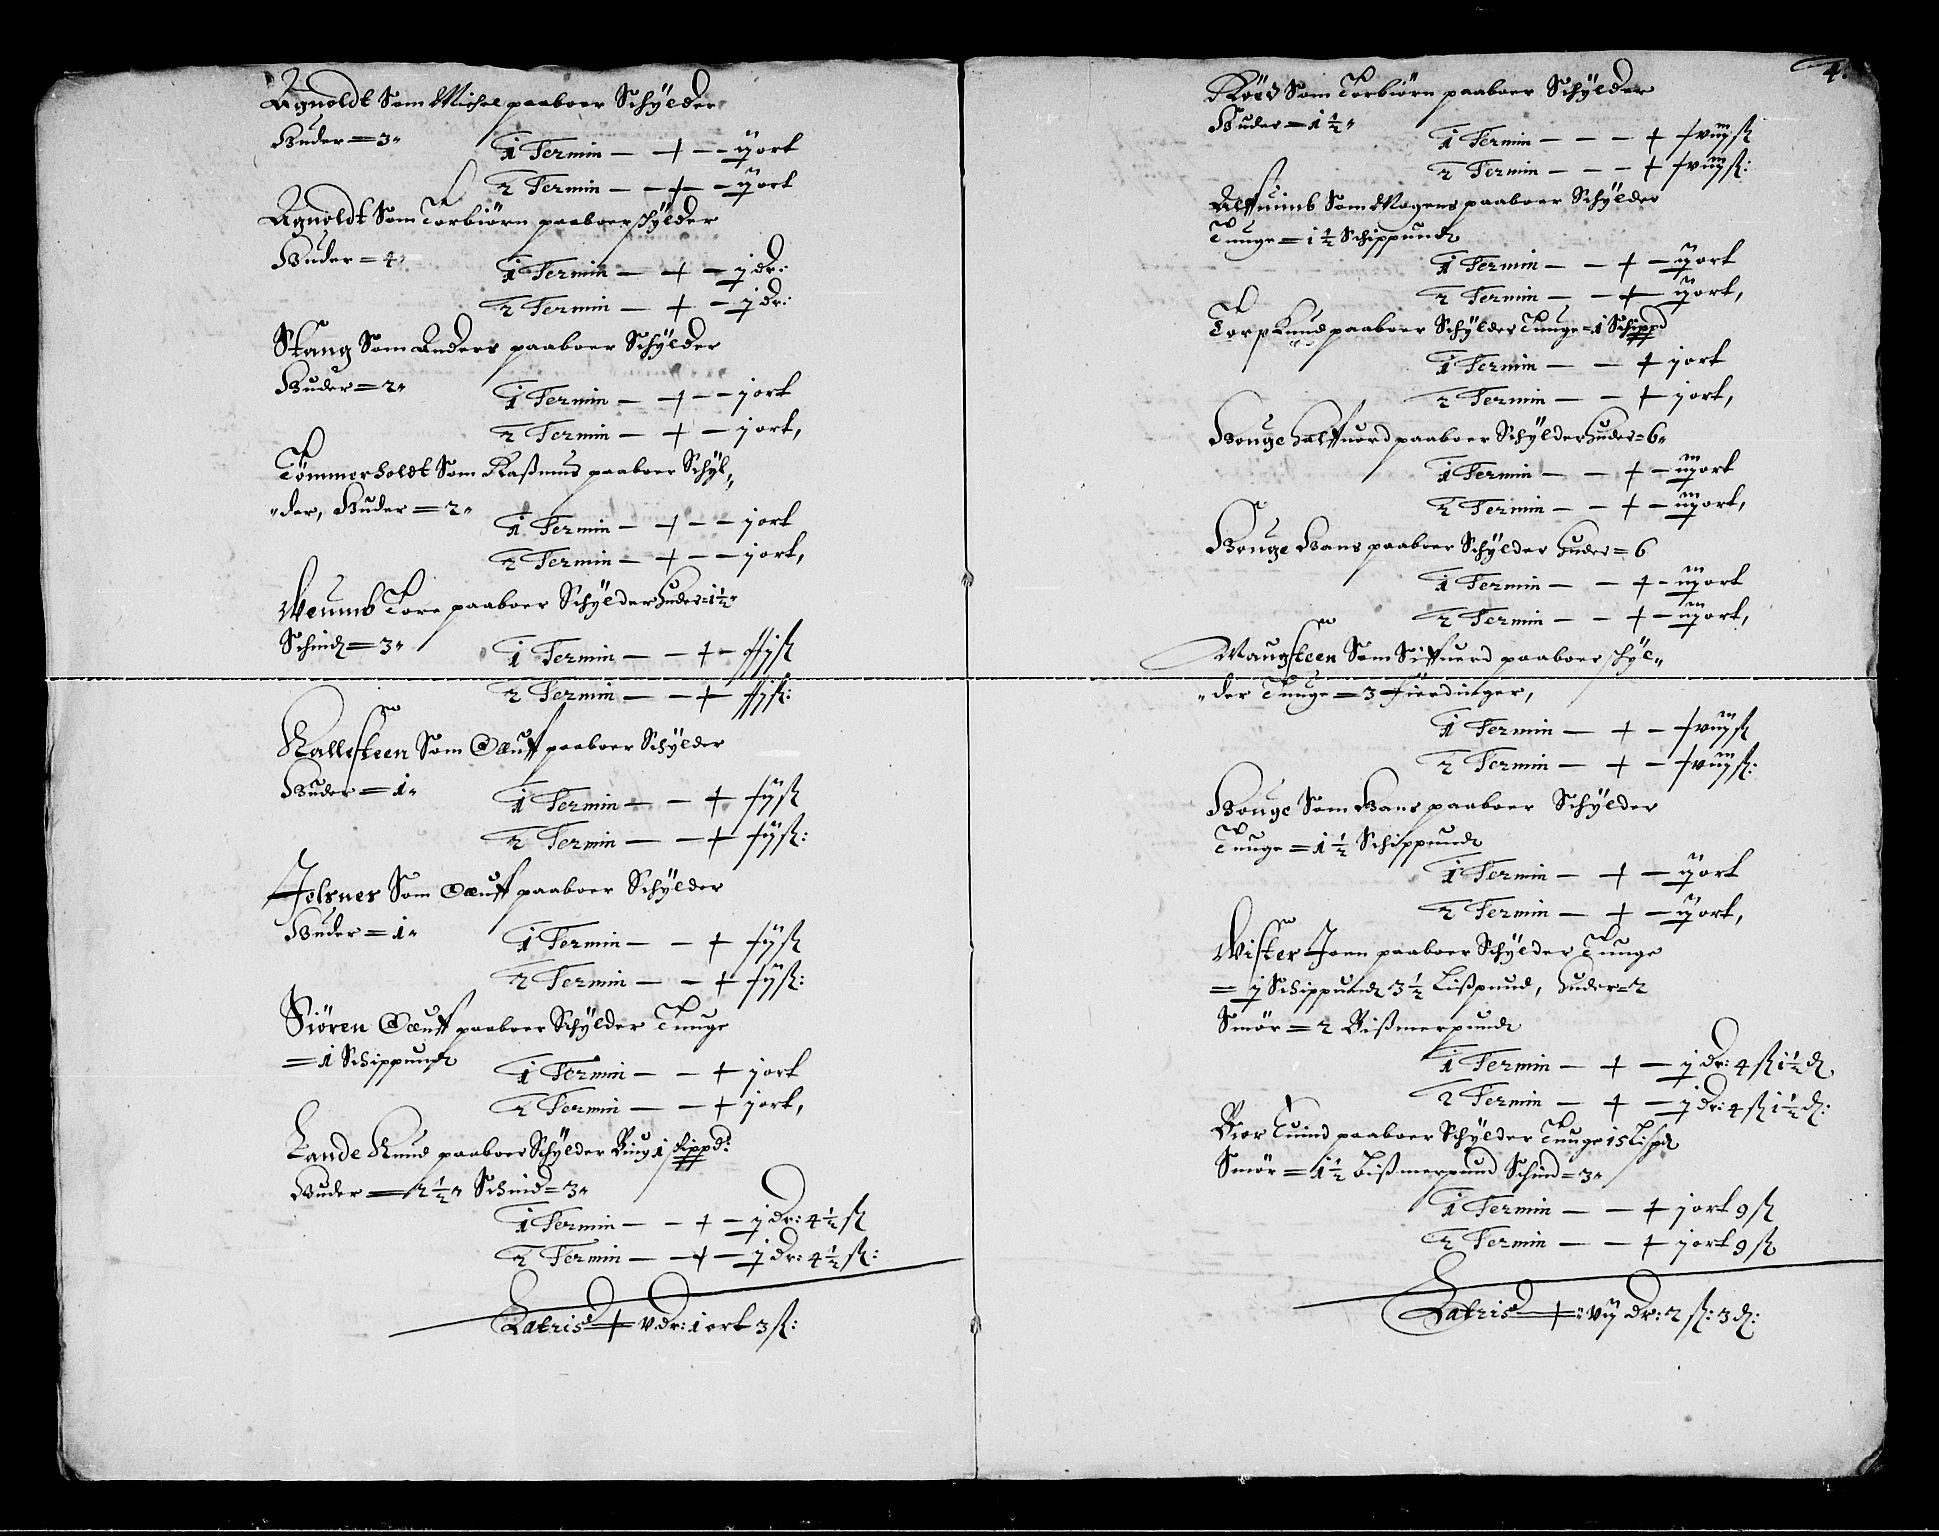 Agnoldt Som Michel paaboer Schÿlder
Huder = 3,,
1 Termin — + — — ijort
2 Termin — — + — ijort
Agnoldt Som Torbiörn paaboer schÿlder
Huder = 4,,
1 Termin — + — j dr:
2 Termin — + — j dr:
Stang Som Anders paaboer Schÿlder
Huder = 2,,
1 Termin — + — — jort
2 Termin — + — jort,
Tømmerholdt Som Rasmus paaboer Schÿl,,
,,der, Huder = 2,,
1 Termin — + — — jort
2 Termin — + — — jort,
Tore paaboer Schÿlder Huder = 1½,,
Schind = 3,,
1 Termin — — + —
2 Termin — — +
Hallesteen Som Oluff paaboer Schÿlder
Huder = 1,,
1 Termin — — + fijß
2 Termin — — + fijß:
Jelsnes Som Oluff paaboer Schÿlder
Huder = 1,,
1 Termin — — + fijß
2 Termin — — + fijß:
Siören Oluff paaboer Schÿlder Tunge
= 1 Schippund
1 Termin — — + jort
2 Termin — — + jort,
Lande Knud paaboer Schÿlder Rug 1 schippd:
Huder = 2½,, Schind = 3,,
1 Termin — — + — j dr: 4½ ß
2 Termin — — + — j dr: 4½ ß:
Lateris + V dr: 1 ort 3 ß:
4.
Röed Som Torbiörn paaboer Schÿlder
Huder = 1½,,
1 Termin — — — + fviijß
2 Termin — — — + fviijß:
Alffuimb Som Mogens paaboer Schÿlder
Tunge = 1½ Schippund
1 Termin — — + — ijort
2 Termin — — + — ijort,
Torp Knud paaboer Schÿlder Tunge = 1 Schippd
1 Termin — — + jort
2 Termin — — + jort,
Houge Halffuord paaboer Schÿlder Huder = 6,,
1 Termin — — + — iijort
2 Termin — — + — iijort,
Houge Hans paaboer Schÿlder Huder = 6
1 Termin — — + — iijort
2 Termin — — + — iijort,
Maugsteen Som Siffuerd paaboer schÿl,,
,,der Tunge = 3 Fierdinger,
1 Termin — + — fviijß
2 Termin — + — fviijß:
Houge Som Hans paaboer Schÿlder
Tunge = 1½ Schippund
1 Termin — + — ijort
2 Termin — + — ijort,
Wister Joen paaboer Schÿlder Tunge
= j Schippund 3½ Lißpund, Huder = 2
Smör = 2 Bißmerpund
1 Termin — + — j dr: 4 ß 1½ d,
2 Termin — + — j dr: 4 ß 1½ d:
Tuind paaboer Schÿlder Tunge 15 Lispd
Smör = 1½ Bißmerpund Schind = 3,,
1 Termin — — + jort 9 ß
2 Termin — — + jort 9 ß
Lateris + vij dr: 2 ß: 3 d: